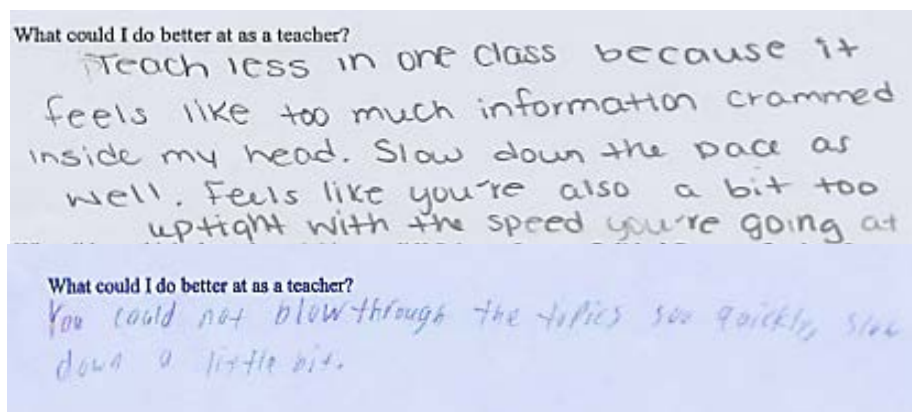 What could I do better at as a teacher?
Teach less in one class because it
feels like too much information crammed
inside my head. Slow down the pace as
well. Feels like you're also a bit too
uptight with the speed you're going at
What could I do better at as a teacher?
You could not blow through the topics soo quickly, slow
down a little bit.